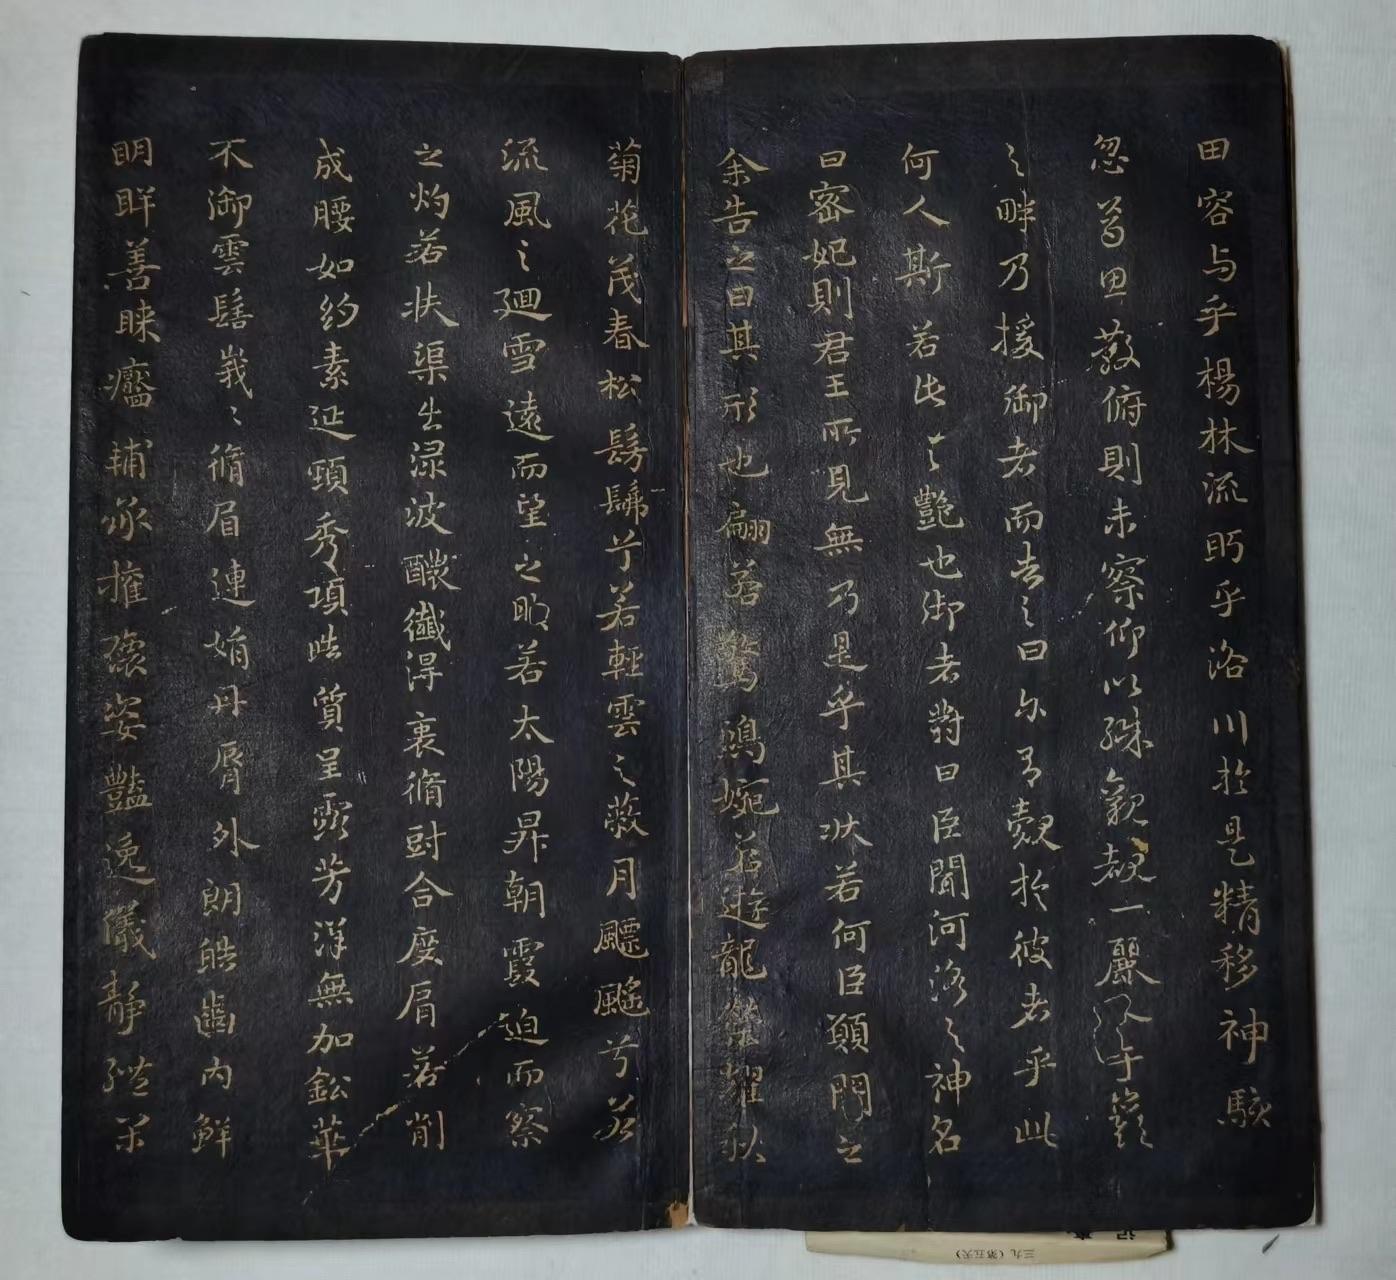 田容与乎楊林流眄乎洛川於是精移神駭
忽焉思散俯則未察仰以殊觀覩一麗人于巖
之畔乃援御者而告之曰尓有覿於彼者乎此
何人斯若此之豔也御者對曰臣聞河洛之神名
曰宓妃則君王所見無乃是乎其状若何臣願聞之
余告之曰其形也翩若驚鴻婉若遊龍榮耀秋
菊花茂春松髣髴兮若輕雲之蔽月飄颻兮若
流風之迴雪遠而望之皎若太陽昇朝霞迫而察
之灼若扶渠出渌波醲纖得衷脩尌合度肩若削
成腰如約素延頸秀項皓質呈露芳澤無加鈆華
不御雲髻峩〻脩眉連娟丹脣外朗皓齒内鮮
明眸善睞靨輔承權瓌姿豔逸儀静體閑
三九（第五天）